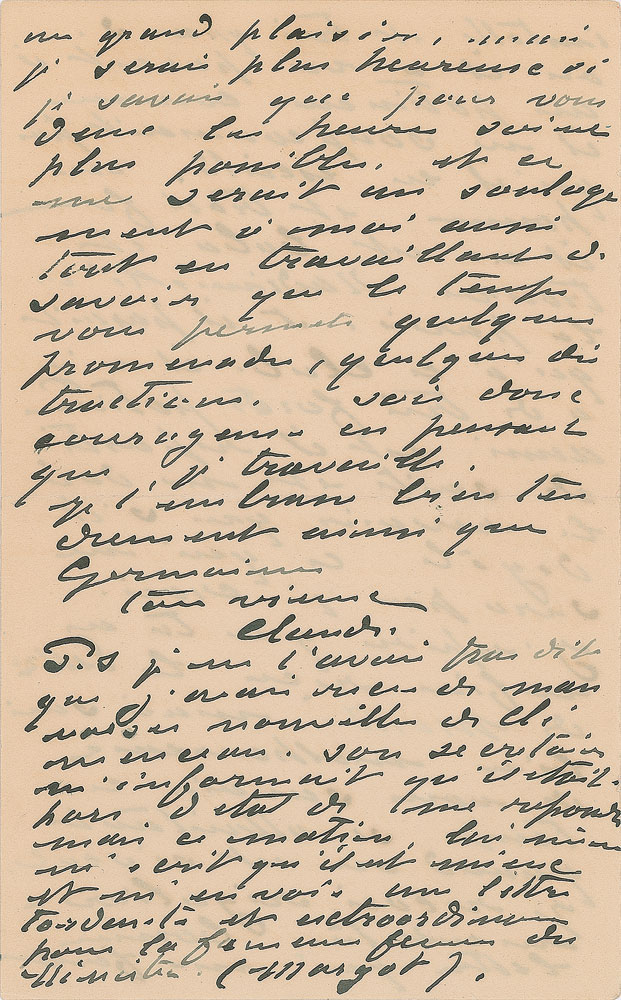 un grand plaisir, mais
je serais plus heureuse si
je savais que pour vous
deux les heures soient
plus                  et ce
me serait un soulage
ment à moi aussi
tout en travaillant de
savoir que le temps
vous permets quelques
promenades, quelques dis
tractions. sois donc
courageuse en pensant
que je travaille.
je t'embrasse bien ten
drement ainsi que
Germaine
ton vieux
Claude
P.S je ne t'avais pas dit
que j'avais reçu de mau
vaises nouvelles de Cle
menceau. son secretaire
m'informait qu'il était
hors d'etat de me repondre
mais ce matin, lui même
m'ecrit qu'il est mieux
et m'envoie une lettre
tordante et extraordinaire
pour la fameuse femme du
Ministre. (Margot).